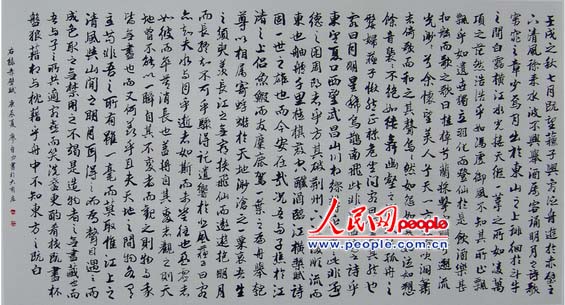 壬戌之秋七月既望蘇子與客泛舟遊於赤壁之
下清風徐來水波不興舉酒屬客誦明月之詩歌
窈窕之章少焉月出於東山之上徘徊於斗牛
之間白露橫江水光接天縱一葦之所如凌萬
頃之茫然浩浩乎如馮虛御風不知其所止飄
飄乎如遺世獨立羽化而登仙於是飲酒樂甚
扣舷而歌之歌曰桂棹兮蘭槳擊空明兮溯
流光渺渺兮余懷望美人兮天一方客有吹洞簫
者倚歌而和之其聲嗚嗚然如怨如慕如泣如訴
餘音裊裊不絕如縷舞幽壑
嫠婦蘇子愀然正襟危坐而問客
客曰月明星稀烏鵲南飛此非
東望夏口西望武昌山川相繆
德之困周郎者乎方其破荊州
東也舳艫千里旌旗蔽空釃酒臨江橫槊賦詩
固一世之雄也而今安在哉況吾與子漁樵於江
渚之上侶魚蝦而友麋鹿駕一葉之扁舟舉匏
尊以相屬寄蜉蝣於天地渺滄海之一粟哀吾生
之須臾羨長江之無窮挾飛仙而遨遊抱明月
而長終知不可乎驟得託遺響於悲風蘇子曰客
亦知夫水與月乎逝者如斯而未嘗往也盈虛者
如彼而卒莫消長也蓋將自其變者而觀之則天
地曾不能以一瞬自其不變者而觀之則物與我
皆無盡也而又何羨乎且夫天地之間物各有
主苟非吾之所有雖一毫而莫取惟江上之
清風與山間之明月耳得之而為聲目遇之而
成色取之無禁用之不竭是造物者之無盡藏也而
吾與子之所共適客喜而笑洗盞更酌肴核既盡杯
盤狼藉相與枕藉乎舟中不知東方之既白
右錄赤壁賦
人民网
www.people.com.cn